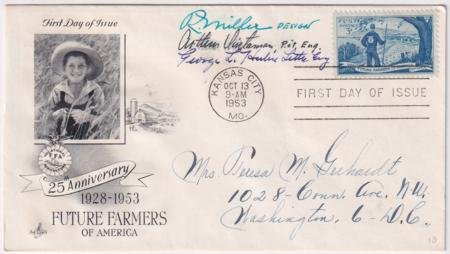 First Day of Issue
DESIGN
Arthur W. Dintaman, Pict. Eng.
George L. Huber Letter Eng
U.S. POSTAGE 3¢
FUTURE FARMERS
KANSAS CITY
OCT 13
9-AM
1953
MO.
FIRST DAY OF ISSUE
FFA
25th Anniversary
1928-1953
FUTURE FARMERS
OF AMERICA
Mrs Teresa M. Gerhardt
1028-Conn. Ave. N.W.
Washington 6-D.C.